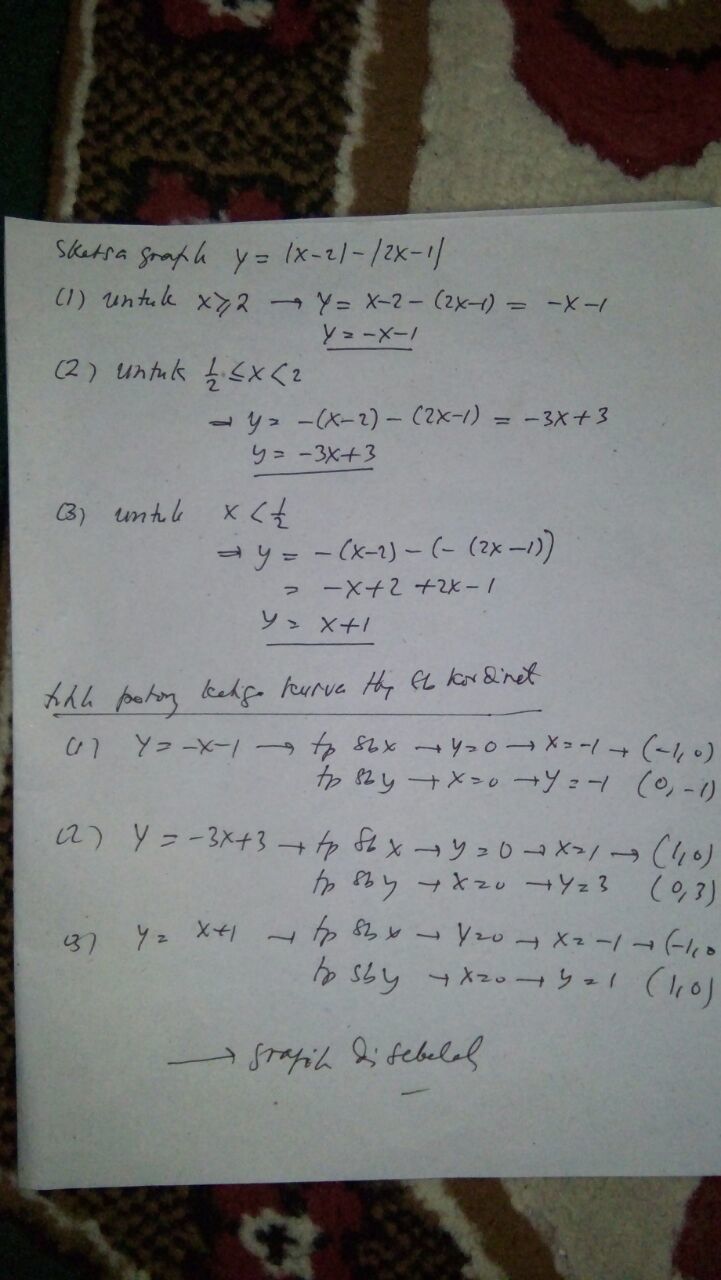 Sketsa graph y = |x-2| - |2x-1|
(1) untuk x ≥ 2 → y = x-2 - (2x-1) = -x-1
y = -x-1
(2) untuk 1/2 ≤ x < 2
⇒ y = -(x-2) - (2x-1) = -3x+3
y = -3x+3
(3) untuk x < 1/2
⇒ y = -(x-2) - (-(2x-1))
= -x+2 +2x-1
y = x+1
titik potong ketiga kurva thp sb kordinat
(1) y = -x-1 → tp sb x → y=0 → x=-1 → (-1,0)
tp sb y → x=0 → y=-1 (0,-1)
(2) y = -3x+3 → tp sb x → y=0 → x=1 → (1,0)
tp sb y → x=0 → y=3 (0,3)
(3) y = x+1 → tp sb x → y=0 → x=-1 → (-1,0
tp sb y → x=0 → y=1 (1,0)
→ grafik disebelah